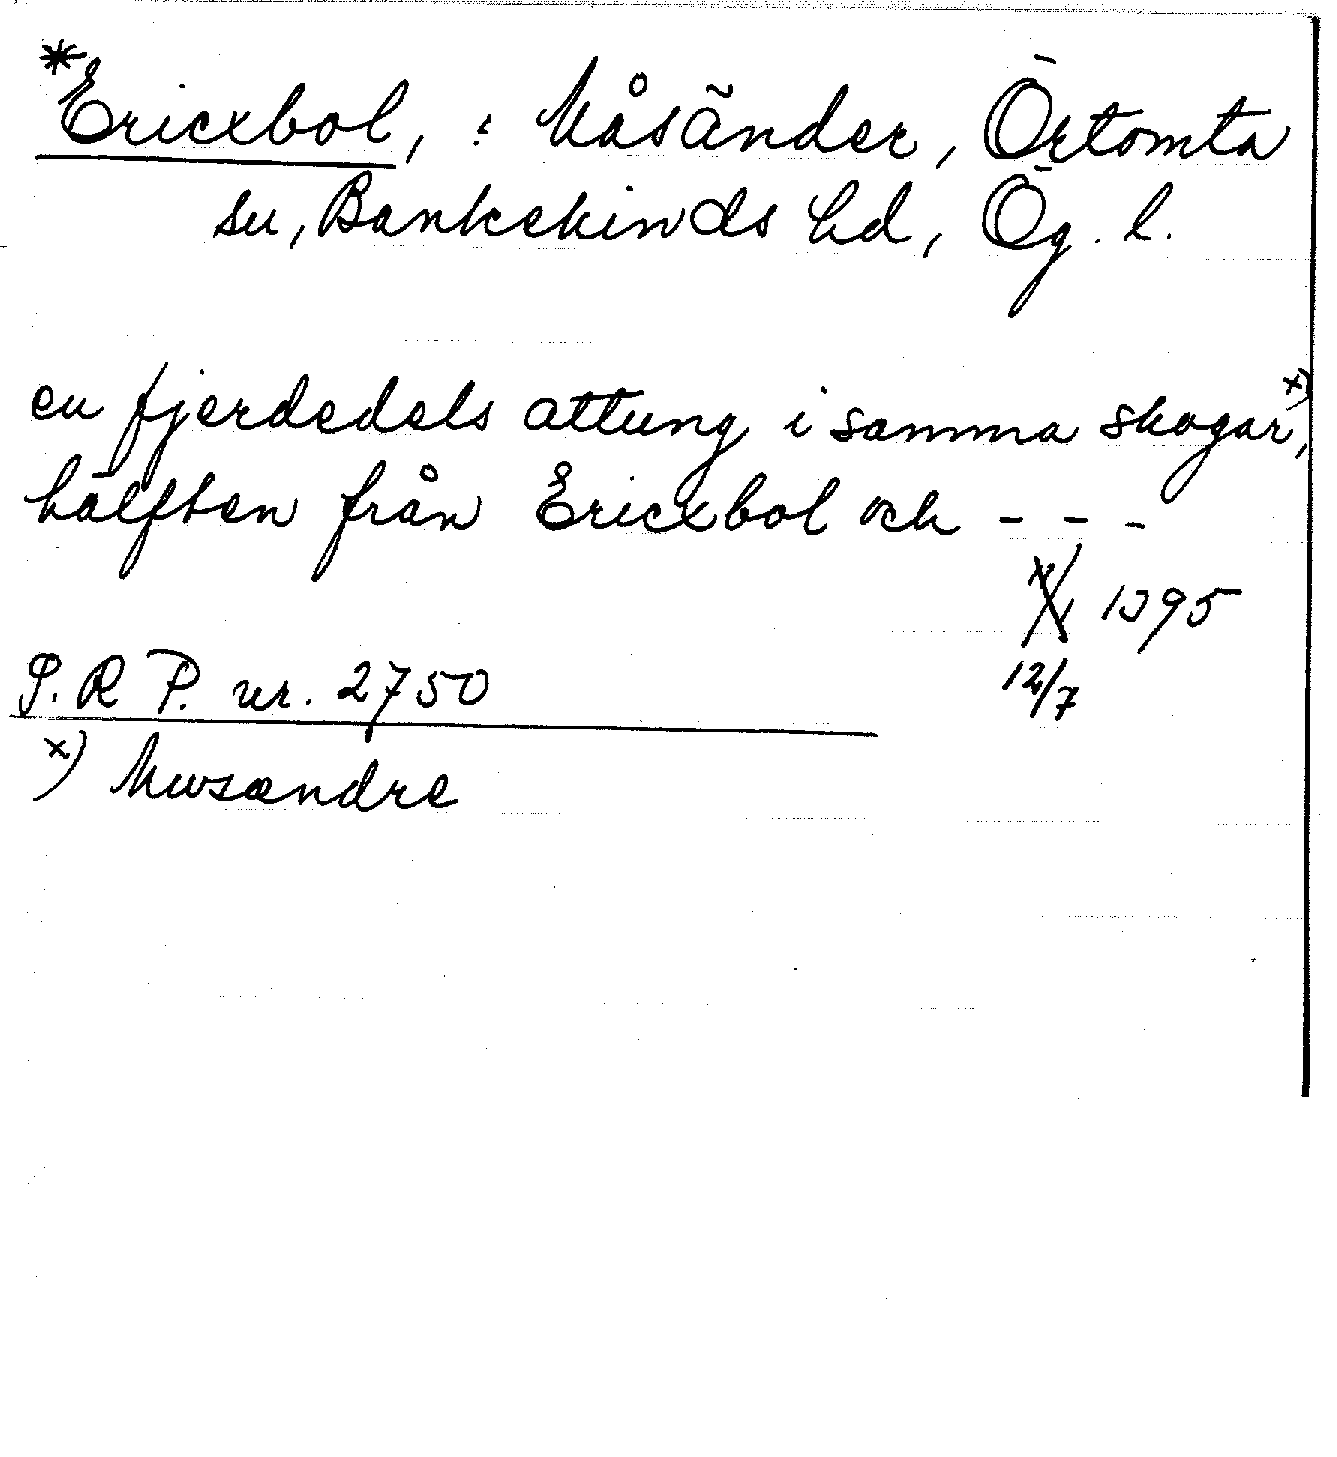 *Ericxbol, : Måsänder, Örtomta
sn, Bankekinds hd, Ög. l.
en fjerdedels attung i samma skogar, x)
hälften från Ericxbol och - - -
1395
12/7
S. R P. nr. 2750
x) Mwsændre